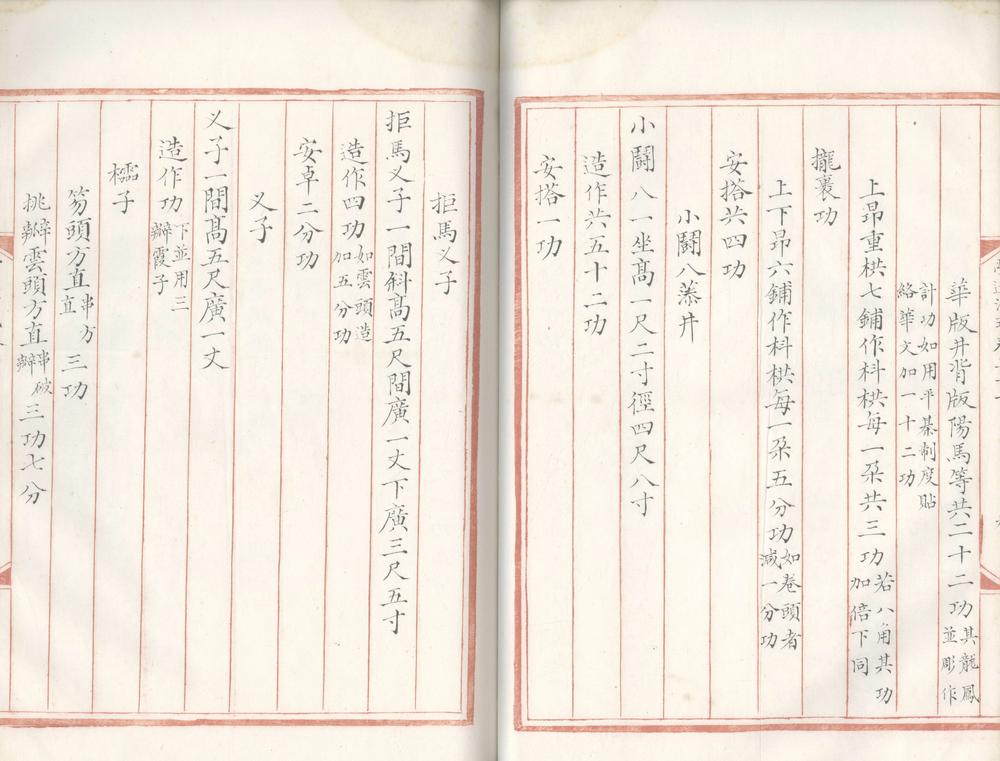 華版井背版陽馬等共二十二功其龍鳳並彫作
計功如用平棊制度貼絡華文加一十二功
上昂重栱七鋪作枓栱每一朶共三功若八角其功加倍下同
攏裹功
上下昂六鋪作枓栱每一朶五分功如卷頭者減一分功
安搭共四功
小鬭八藻井
小鬭八一坐高一尺二寸徑四尺八寸
造作共五十二功
安搭一功
拒馬义子
拒馬义子一間斜高五尺間廣一丈下廣三尺五寸
造作四功如雲頭造加五分功
安卓二分功
义子
义子一間高五尺廣一丈
造作功下並用三瓣霞子
櫺子
笏頭方直串方直三功
挑瓣雲頭方直串破瓣三功七分